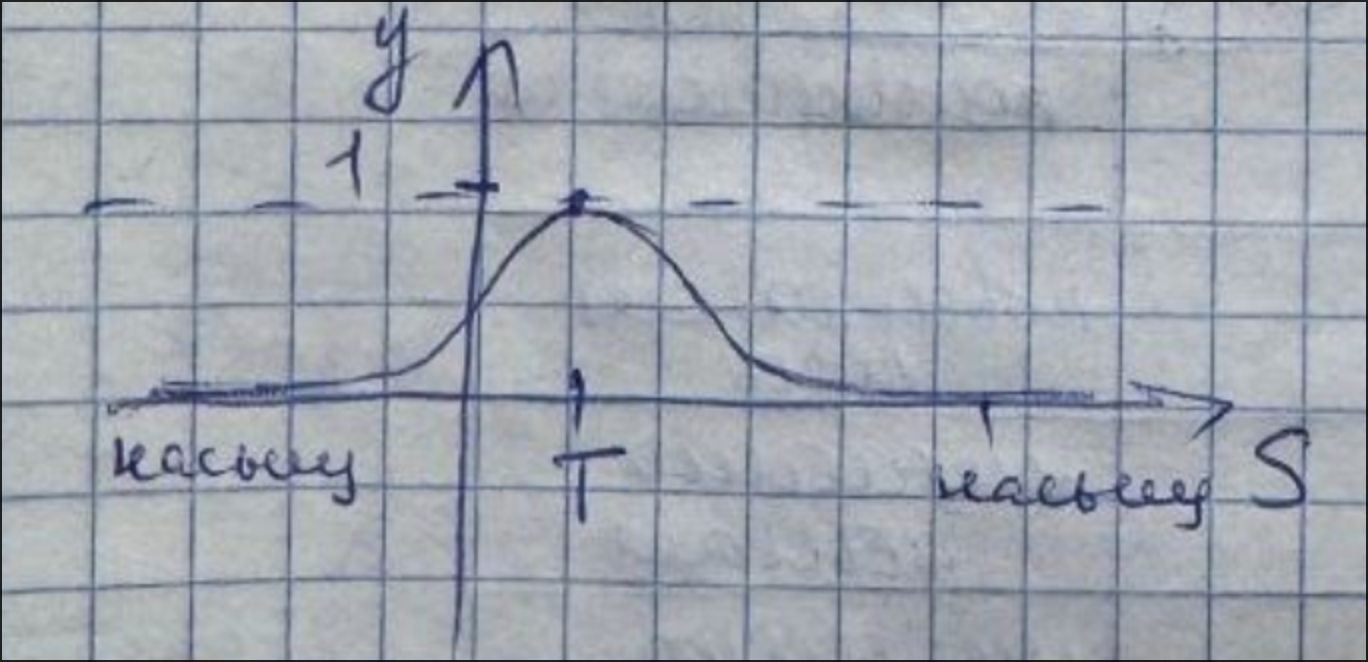 y
1
насыщ T насыщ S